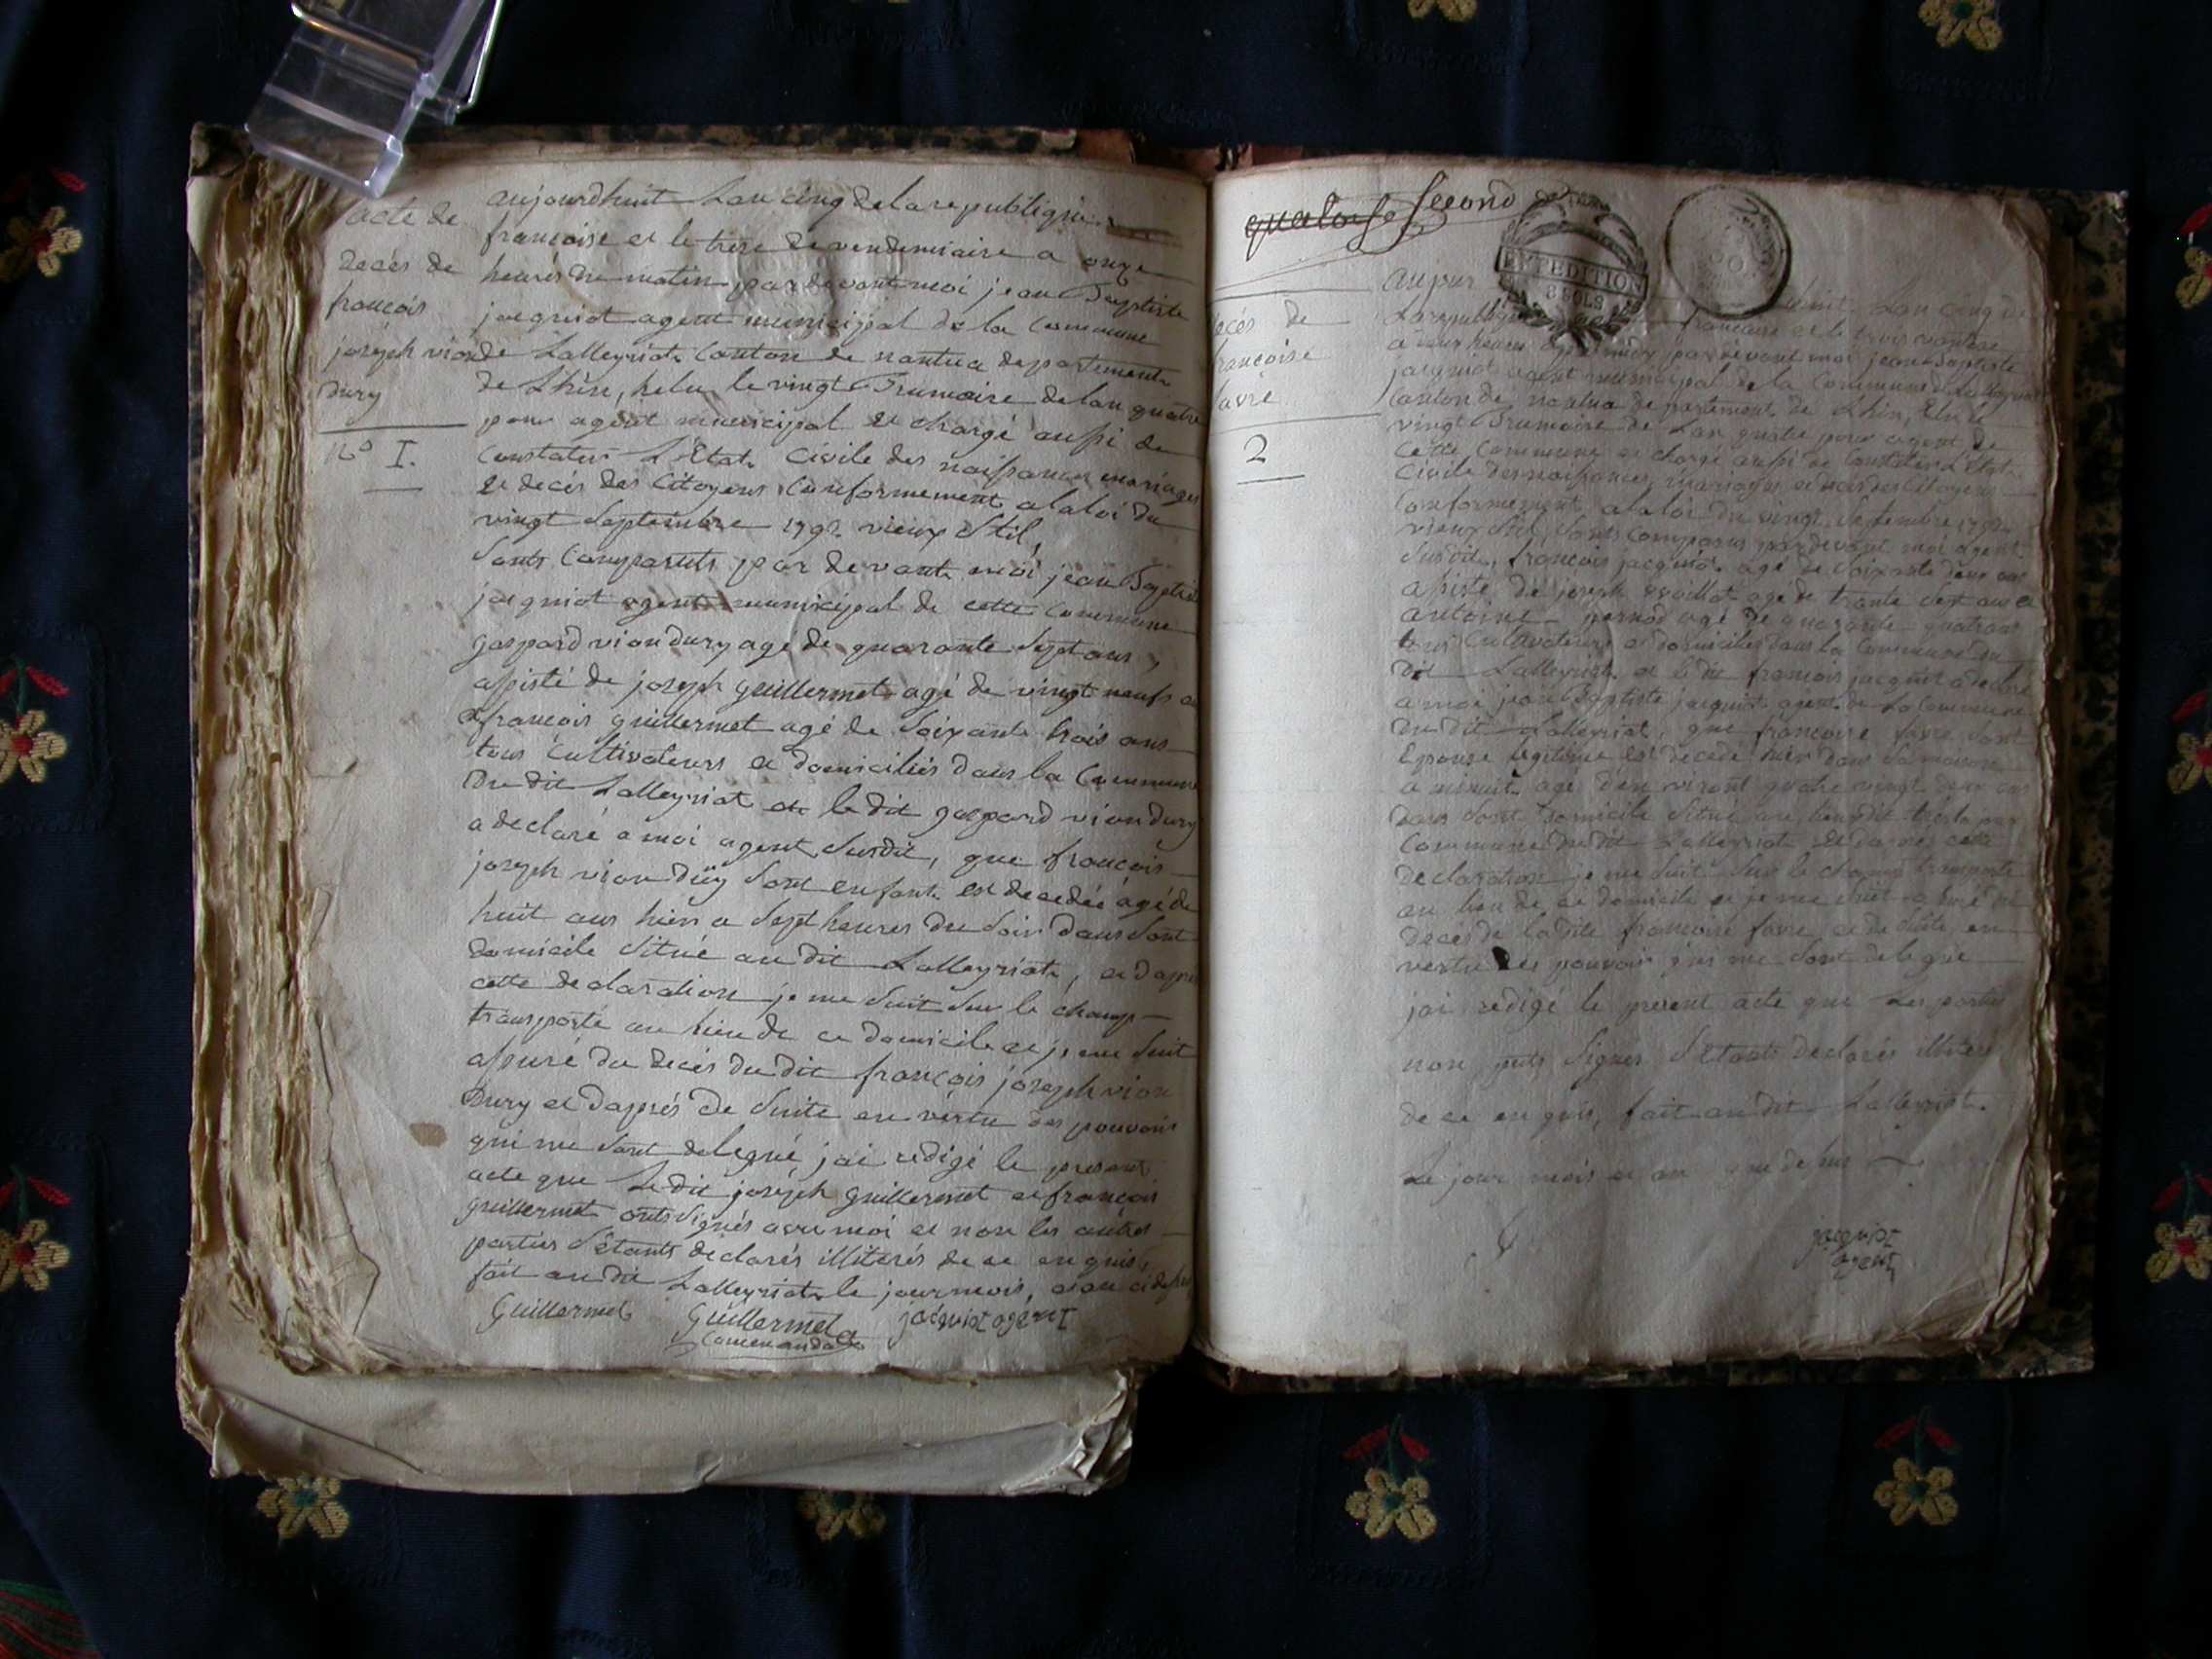 acte de
decés de
francois
joseph vion
dury
no I.
aujourdhuit Lan cinq de la republique
francoise et le treze de vendemiaire a onze
heures du matin par devant moi jean Baptiste
jacquiot agent municipal de la Commune
de Lalleyriat Canton de nantua departement
de Lhin, helu le vingt Brumaire de lan quatre
pour agent municipal et chargé aussi de
Constater L'Etat Civile des naissances mariages
et decés des Citoyens Conformement a la loi du
vingt Septembre 1792 vieux Stil,
Sonts Comparuts par devant moi jean Baptiste
jacquiot agent municipal de cette Commune
gaspard vion dury agé de quarante Sept ans,
assisté de joseph guillermet agé de vingt neufs
et francois guillermet agé de Soixante trois ans
tous Cultivateurs et domiciliés dans la Commune
du dit Lalleyriat et le dit gaspard vion dury
a declaré a moi agent Susdit, que francois
joseph vion dury Sont enfant est decedée agé de
huit ans hier a Sept heures du Soir dans Sont
domicile Situé au dit Lalleyriat, et dapres
cette declaration je me Suit Sur le champ
transporté au lieu de ce domicile et je me Suit
assuré du decés du dit francois joseph vion
dury et daprés de Suite en vertu des pouvoirs
qui me Sont delegué jai redigé le present
acte que Le dit joseph guillermet et francois
guillermet onts Signés avec moi et non les autres
parties S'étants declarés illiterés de ce enquis,
fait au dit Lalleyriat le jour mois, et an ci dessus
Guillermet Guillermet jacquiot agent
Commandant
quatorse Second
EXPEDITION
8 SOLS
decés de
francoise
favre
2
aujourdhuit Lan cinq de
La republique francoise et le trois
heures par devant moi jean Baptiste
jacquiot agent municipal de la Commune de Lalleyriat
Canton de nantua departement de Lhin, Elu le
vingt Brumaire de Lan quatre pour agent de
cette Commune et chargé aussi de Constater L'Etat
Civile des naissances, mariages et decés des Citoyens
Conformement a la loi du vingt Septembre 1792
vieux Stil, Sonts Comparus par devant moi agent
Susdit, francois jacquiot agé de Soixante deux ans
assisté de joseph agé de trante Sept ans et
antoine pernod agé de quarante quatre ans
tous Cultivateurs et domiciliés dans la Commune du
dit Lalleyriat et le dit francois jacquiot a declaré
a moi jean Baptiste jacquiot agent de La Commune
du dit Lalleyriat, que francoise favre Sont
Epouse legitime est decedé hier dans Sa maison
a minuit agé d'en viront quatre vingt deux ans
dans Sont domicile Situé au lieu dit
Commune du dit Lalleyriat et daprés cette
declaration je me Suit Sur le champ transporté
au lieu de ce domicile et je me Suit assuré du
decés de ladite francoise favre et de Suite en
vertu des pouvoir qui me Sont delegué
jai redigé le present acte que Les parties
non puts Signer S'étants declarés illiterés
de ce enquis, fait au dit Lalleyriat.
Le jour mois et an que dessus
jacquiot
agent